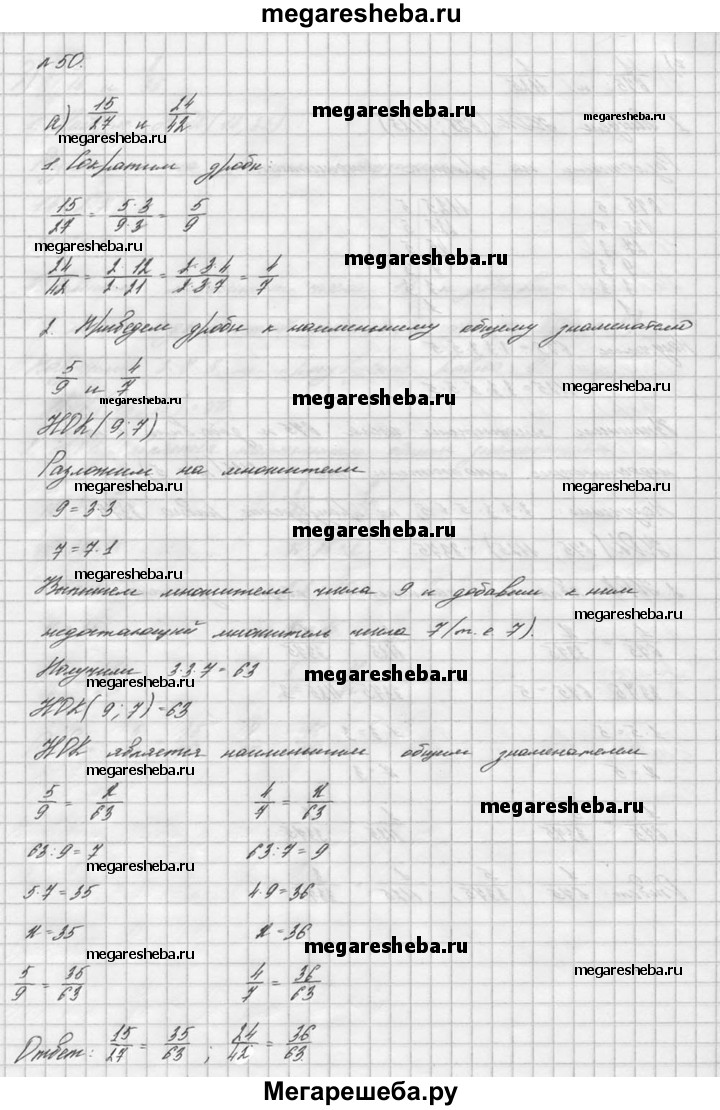 megaresheba.ru
№50.
а) 15/27 и 24/42
megaresheba.ru
megaresheba.ru
megaresheba.ru
1. Сократим дроби:
15/27 = 5·3/9·3 = 5/9
megaresheba.ru
megaresheba.ru
24/42 = 2·12/2·21 = 2·3·4/2·3·7 = 4/7
2. Приведем дроби к наименьшему общему знаменателю
5/9 и 4/7
megaresheba.ru
megaresheba.ru
megaresheba.ru
НОК(9;7)
Разложим на множители
megaresheba.ru
megaresheba.ru
9=3·3
megaresheba.ru
7=7·1
megaresheba.ru
Выпишем множители числа 9 и добавим к ним
megaresheba.ru
недостающий множитель числа 7 (т.е 7).
Получили 3·3·7=63
megaresheba.ru
megaresheba.ru
НОК(9;7)=63
НОК является наименьшим общим знаменателем
megaresheba.ru
5/9 = x/63 4/7 = x/63
megaresheba.ru
63:9=7 63:7=9
megaresheba.ru
5·7=35 4·9=36
megaresheba.ru
x=35 x=36
megaresheba.ru
megaresheba.ru
megaresheba.ru
5/9 = 35/63 4/7 = 36/63
Ответ: 15/27 = 35/63 ; 24/42 = 36/63.
Мегарешеба.ру